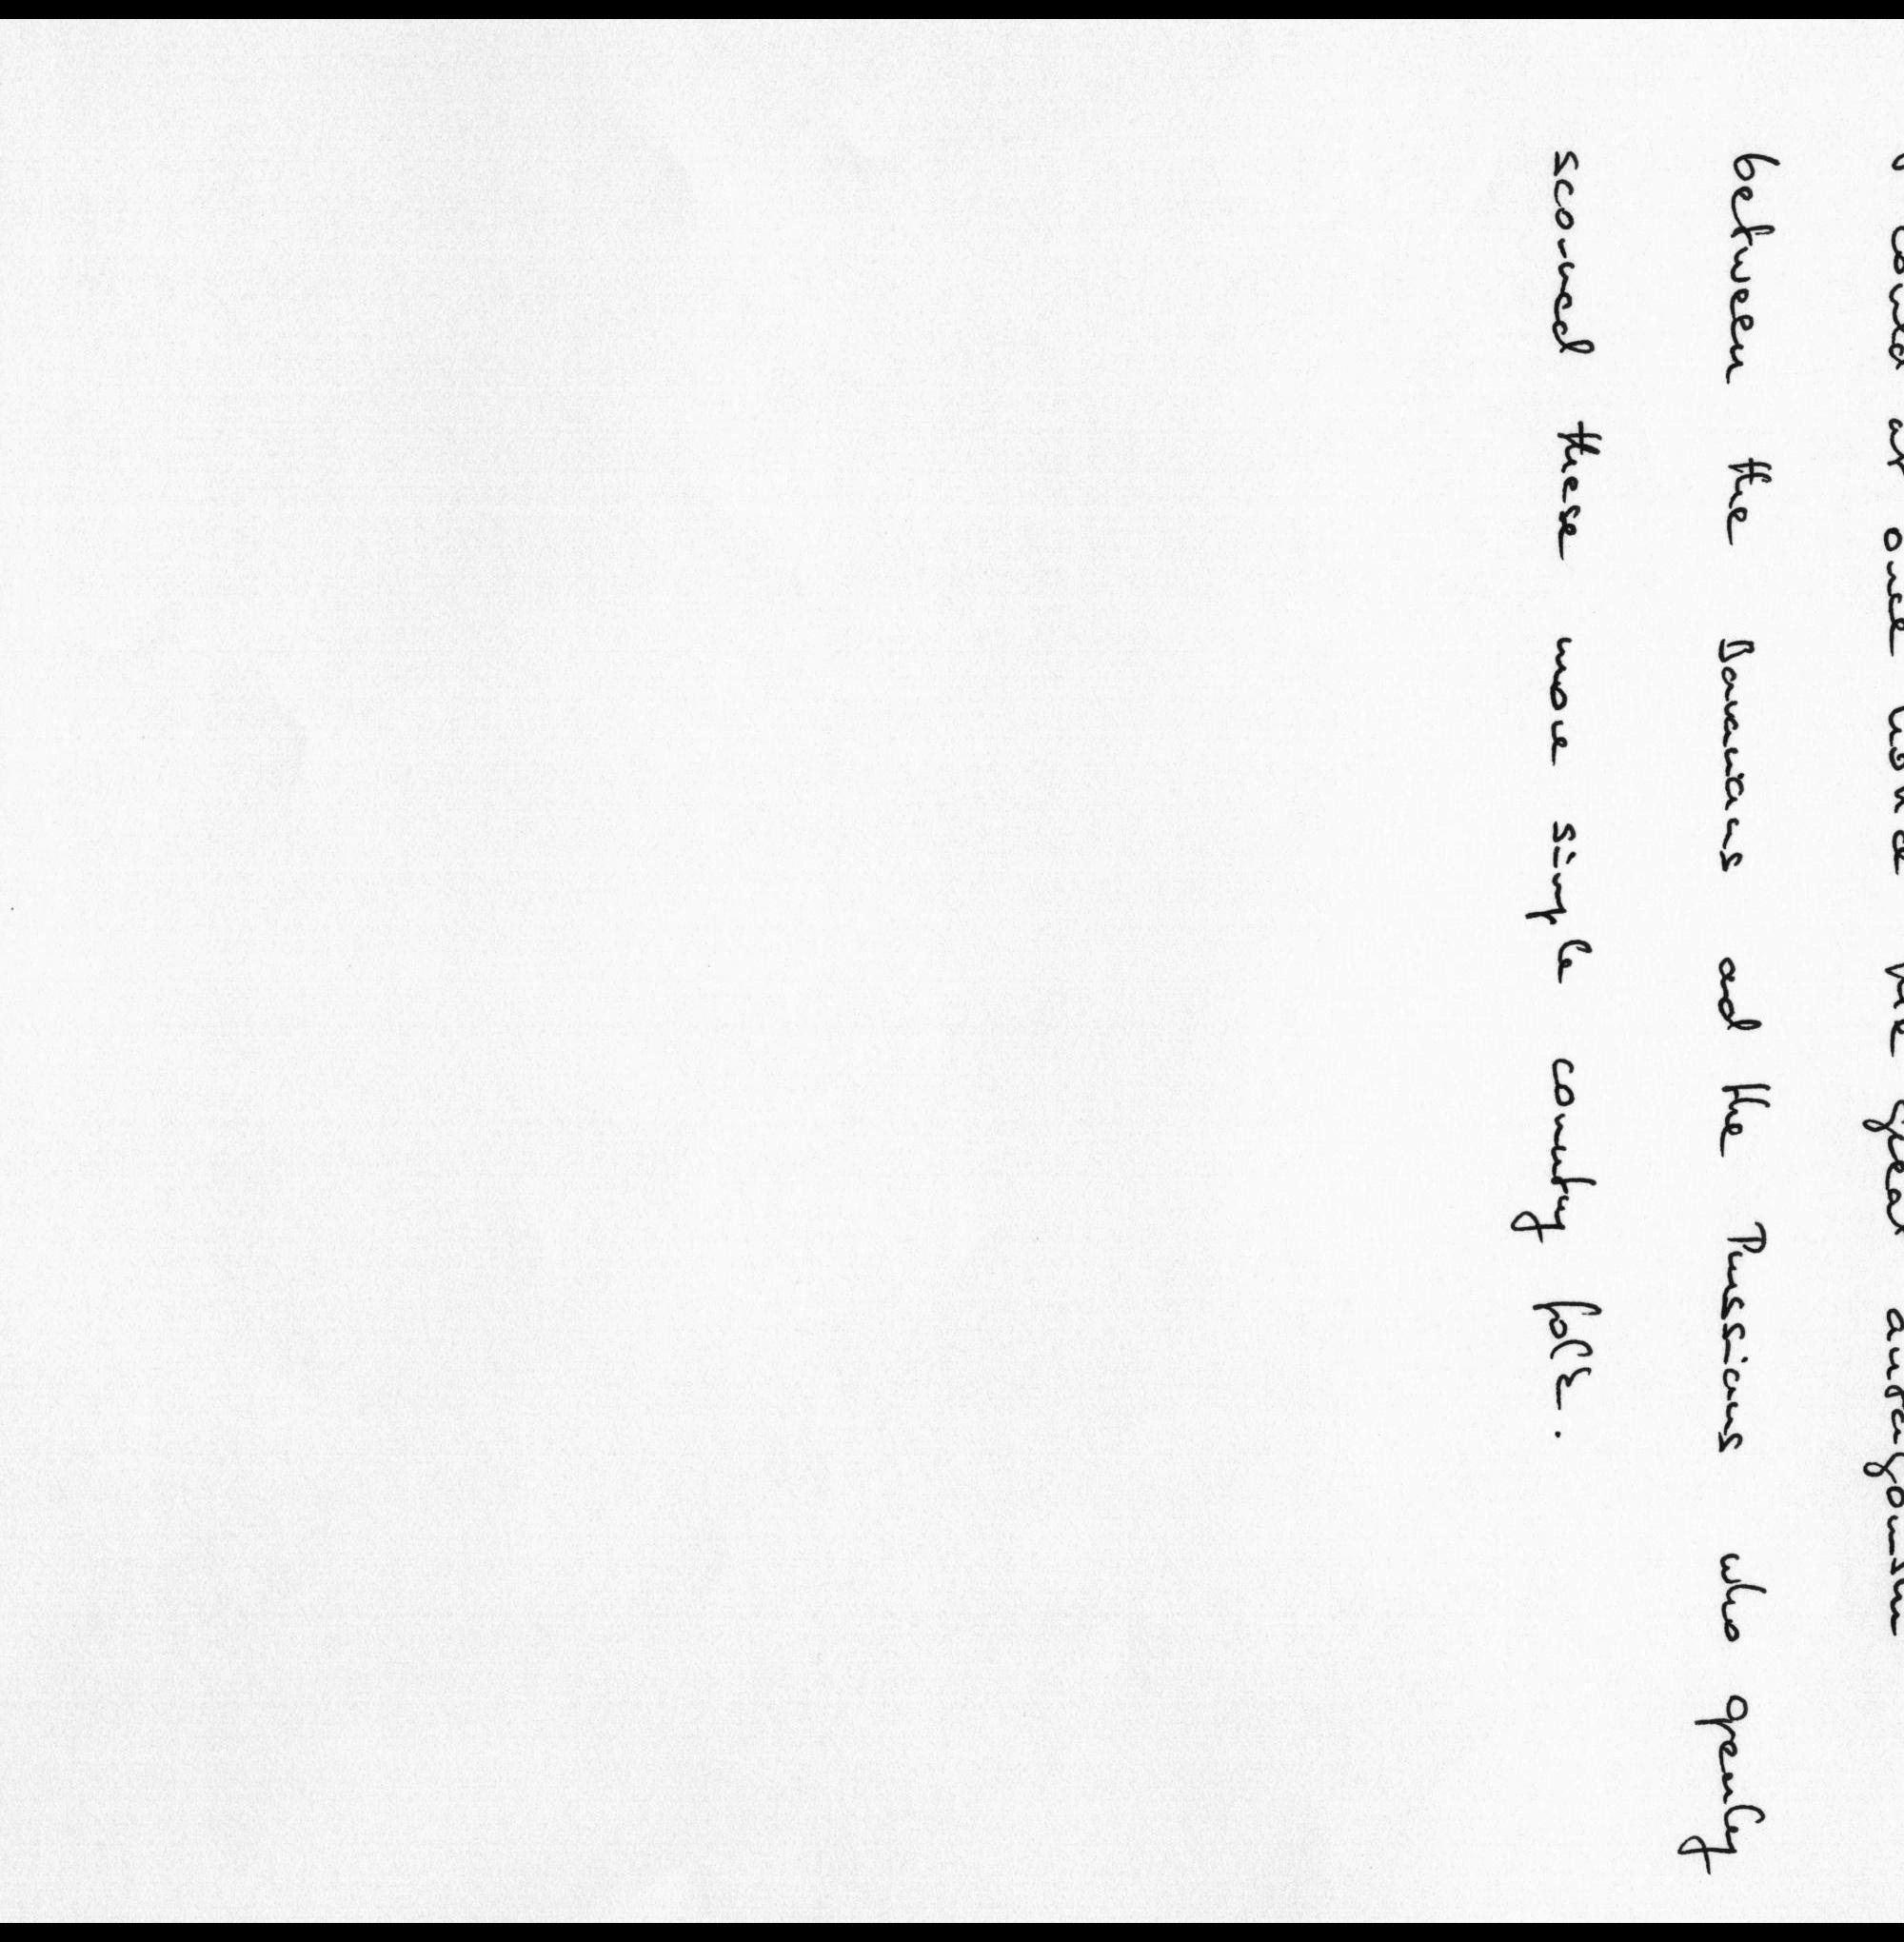 could at once notice the great antagonism
between the Bavarians and the Prussians who openly
scorned these more simple country folk.